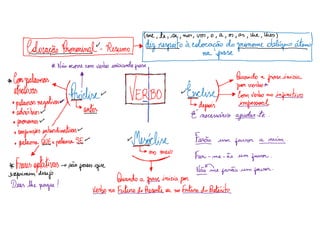 (me, te, se, nos, vos, o, a, os, as, lhe, lhes)
Colocação Pronominal - Resumo → diz respeito à colocação do pronome oblíquo átono
na frase
* Não ocorre com verbo iniciando frase
* Com palavras
atrativas
• palavras negativas
• advérbios
• pronomes
• conjunções subordinativas
• palavra QUE e palavra SE
* Frases optativas → são frases que
exprimem desejo
Deus lhe pague!
Próclise
↳ antes
VERBO
Mesóclise
↳ no meio
Quando a frase inicia por
verbo no Futuro do Presente ou no Futuro do Pretérito
Ênclise
↳ depois
Quando a frase inicia
por verbo
Com verbo no infinitivo
impessoal
É necessário ajudá-lo.
Faria um favor a mim.
Far-me-ia um favor.
Não me faria um favor.